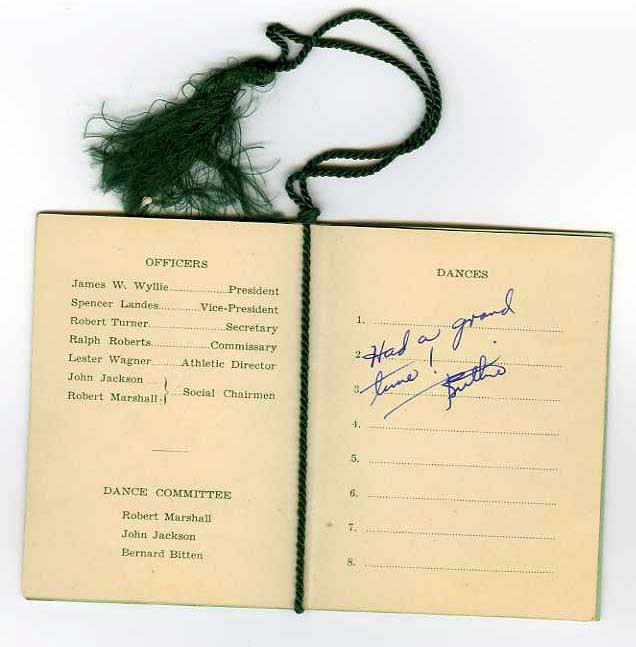 OFFICERS
James W. Wyllie..............President
Spencer Landes..........Vice-President
Robert Turner..................Secretary
Ralph Roberts..............Commissary
Lester Wagner.....Athletic Director
John Jackson
Robert Marshall } Social Chairmen
DANCE COMMITTEE
Robert Marshall
John Jackson
Bernard Bitten
DANCES
1.
Had a grand
2.
time!
3.
Ruthie
4.
5.
6.
7.
8.